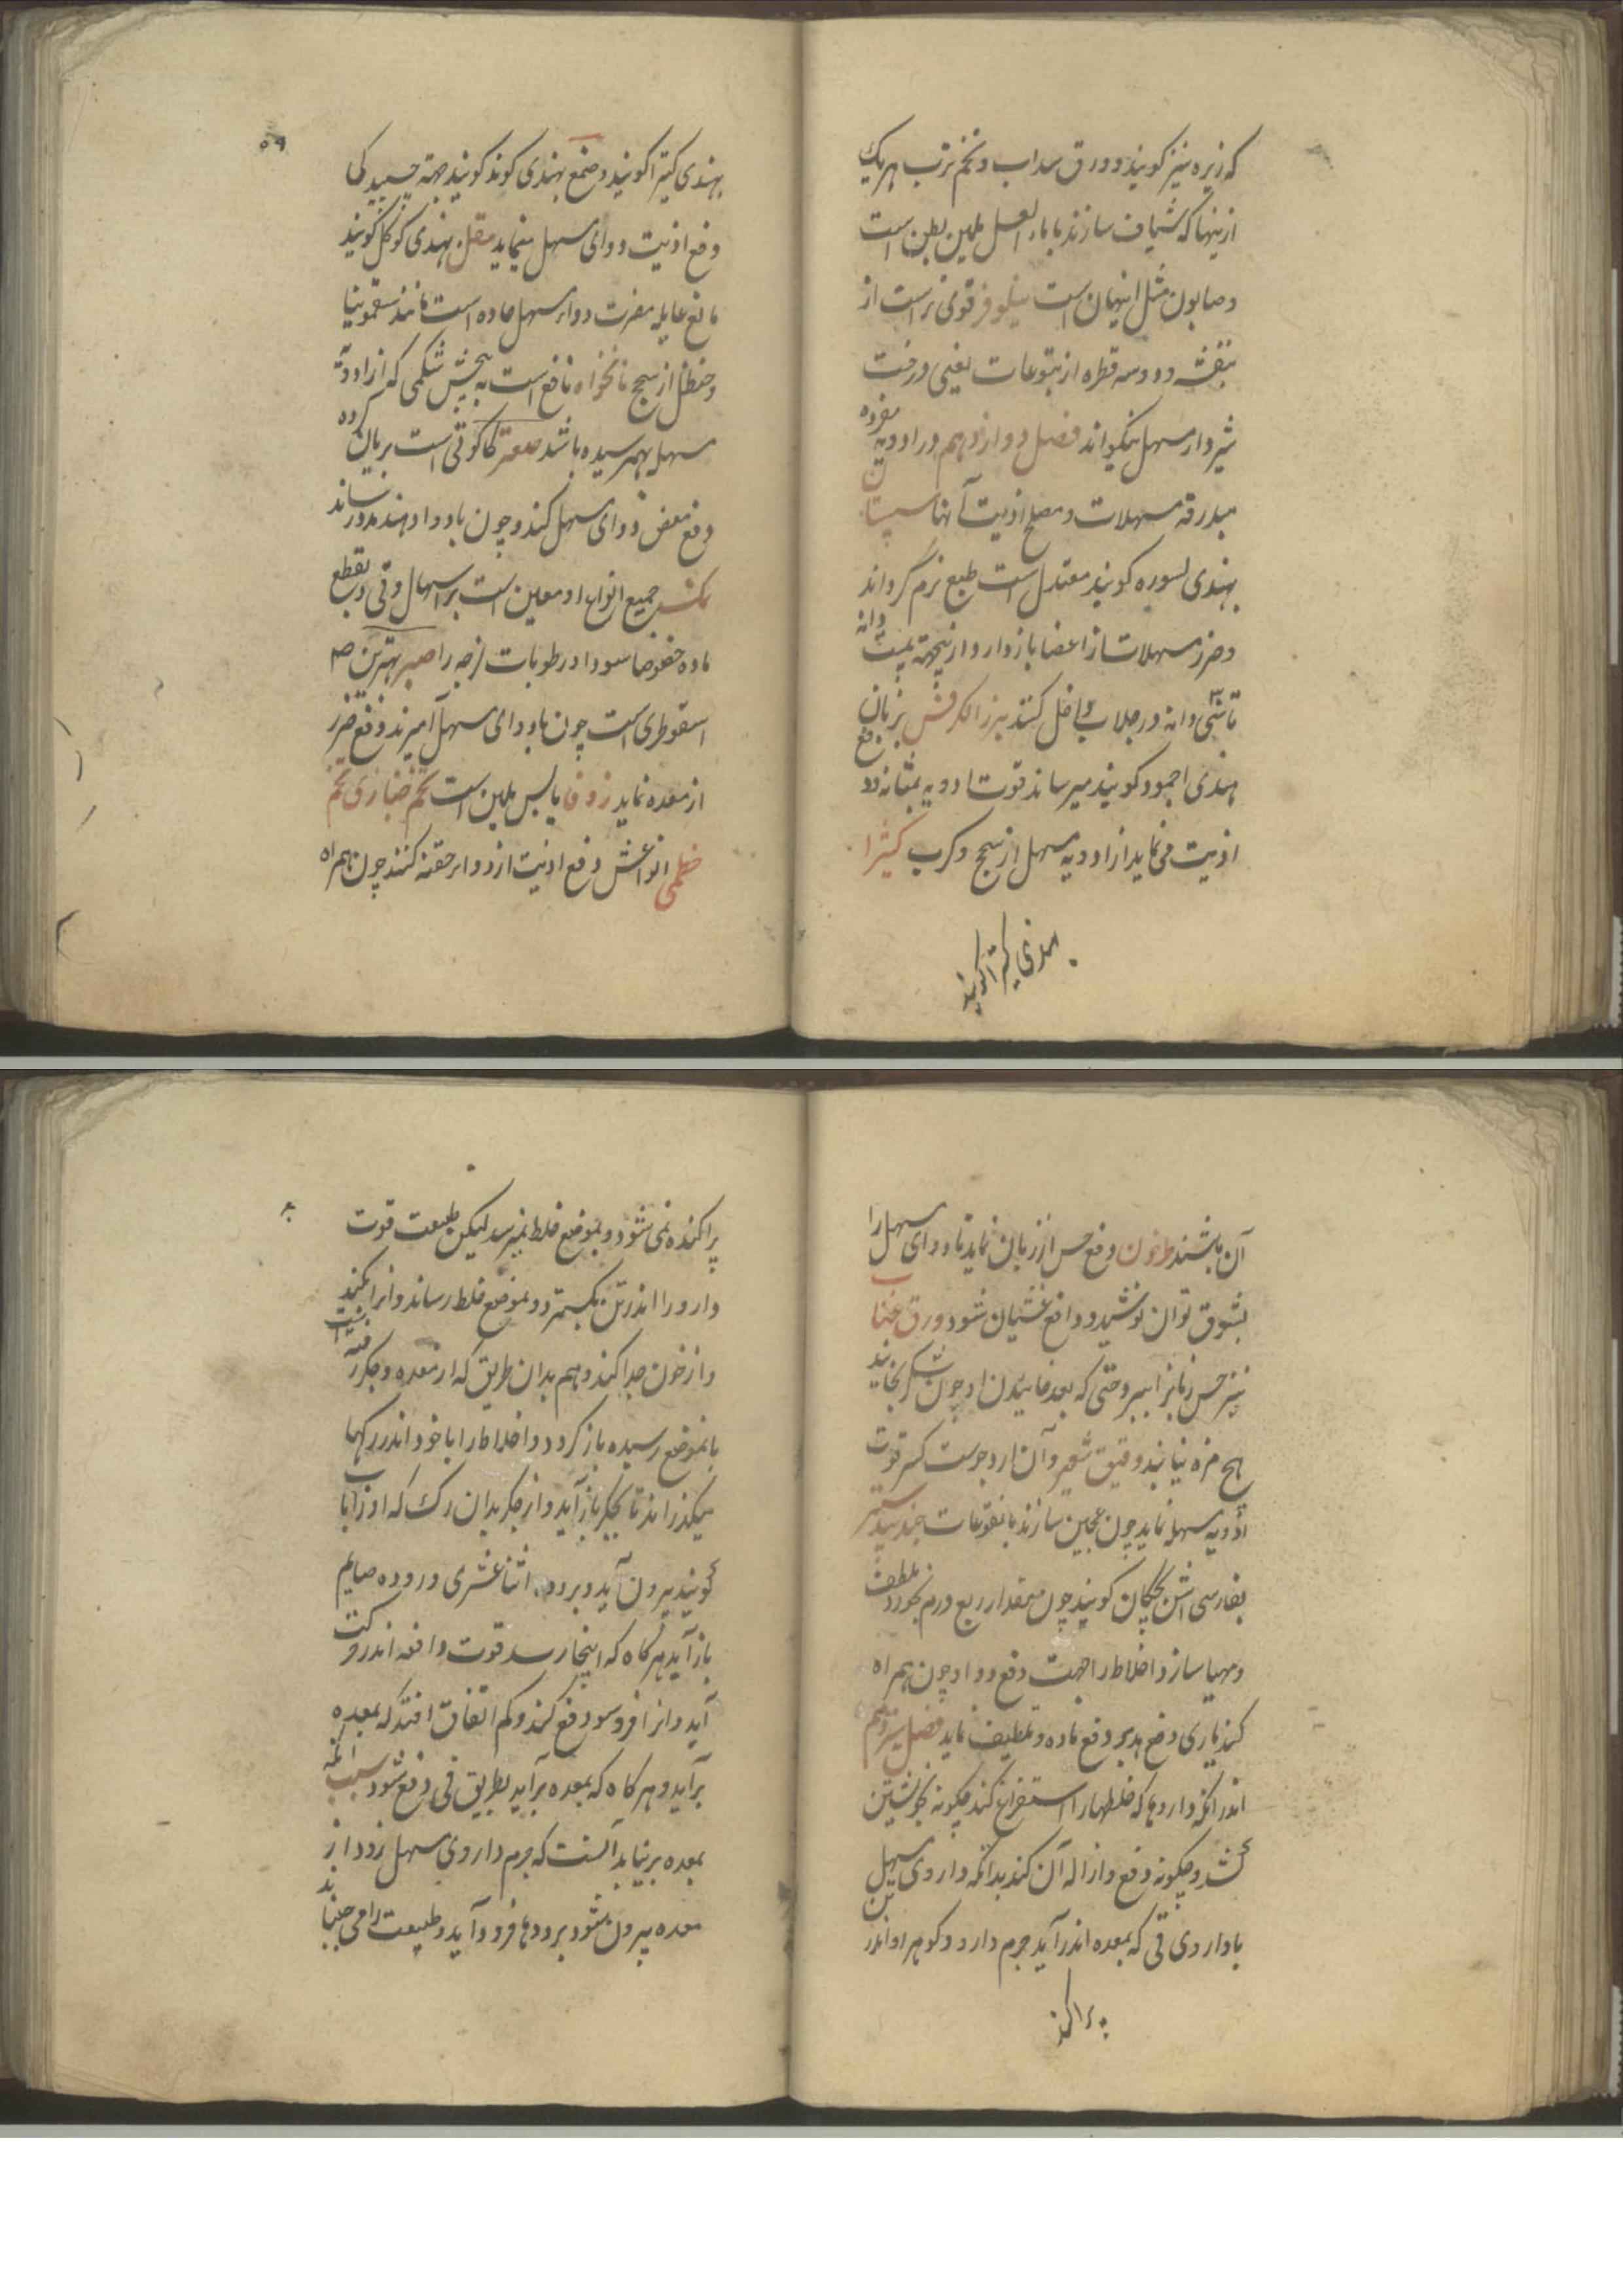 که زیره نیز گویند و ورق سداب و تخم ترب هریک
ازینها که شیاف سازند با ماء العسل ملین بطن است
و صابون مثل اینهان است نیلوفر قوی تر است از
بنفشه و دو سه قطره از یتوعات یعنی درخت
شیردار مسهل نیکو اند فصل دوازدهم در ادویه مفرده
مبدرقه مسهلات و مصلح اذیت آنها سپستان
بهندی لسوره گویند معتدل است طبع نرم گرداند
و ضرر مسهلات از اعضا باز دارد و ازینجهته بیست دانه
تا سی دانه در جلاب داخل کنند بزر الکرفس بزبان
هندی اجمود گویند میرساند قوت ادویه بمثانه و دفع
اذیت می نماید از ادویه مسهل از سحج و کرب کتیرا
بهندی کتیرا گویند
۵۹
بهندی کتیرا گویند و صمغ بهندی گوند گویند جهته چسپیدگی
دفع اذیت دوای مسهل مینماید مقل بهندی گوگل گویند
مانع غایله مضرت دواء مسهل حاده است مانند سقمونیا
و حنظل از سحج نانخواه نافع است به پیچش شکمی که از ادویه
مسهل بهمرسیده باشد صعتر کاکوتی است بریان کرده
دفع مغص دوای مسهل کند و چون با دوا دهند مدد رساند
نمک جمیع انواع او معین است بر اسهال و قی و بقطع
ماده خصوصا سودا و رطوبات لزجه را صبر بهترین صبر
اسقوطری است چون با دوای مسهل آمیزند دفع ضرر
از معده نماید زوفا یابس ملین است تخم خبازی تخم
خطمی انواعش دفع اذیت از دواء حقنه کنند چون همراه
آن باشند طرخون دفع حس از زبان نماید تا دوای مسهل را
بشوق توان نوشید و دافع غشیان شود ورق عناب
نیز حس زبانرا ببرد حتی که بعد خاییدن او چون شکر بخایند
هیچ مزه نیابند دقیق شعیر و آن آرد جوست کسر قوت
ادویه مسهله نماید چون عجین سازند با نقوعات جندبیدستر
بفارسی آش بچگان گویند چون بمقدار ربع درم بخورد تلطف
و مهیا سازد اخلاط را جهت دفع دوا و چون همراه
کند یاری دفع بدبو دفع ماده و تلطیف نماید فصل سیزدهم
اندر آنکه داروها که خلطها را استفراغ کند چگونه بخویشتن
کشد و چگونه دفع و ازاله آن کند بدانکه داروی مسهل
یا داروی قی که بمعده اندر آید جرم دارد و گوهر او اندر تن
پراکنده
۶۰
پراکنده نمی شود و بموضع خلط نمیرسد لیکن طبیعت قوت
دارو را اندر تن بگسترد و بموضع خلط رساند و آنرا بکند
و از خون جدا کند و هم بدان طریق که از معده و جگر
بانموضع رسیده باز گردد و اخلاط را با خود اندر رگها
میگذراند تا بجگر باز آید و از جگر بدان رگ که او را باب
گویند بیرون آید و بروده اثنا عشری و روده صایم
باز آید هرگاه که اینجا رسد قوت دافعه اندر حرکت
آید و آنرا فرو سو دفع کند و کم اتفاق افتد که بمعده
برآید و هرگاه که بمعده برآید بطریق قی دفع شود سبب آنکه
بمعده برنیاید آنست که جرم داروی مسهل زود از
معده بیرون شود برودها فرود آید و طبیعت را می جنباند